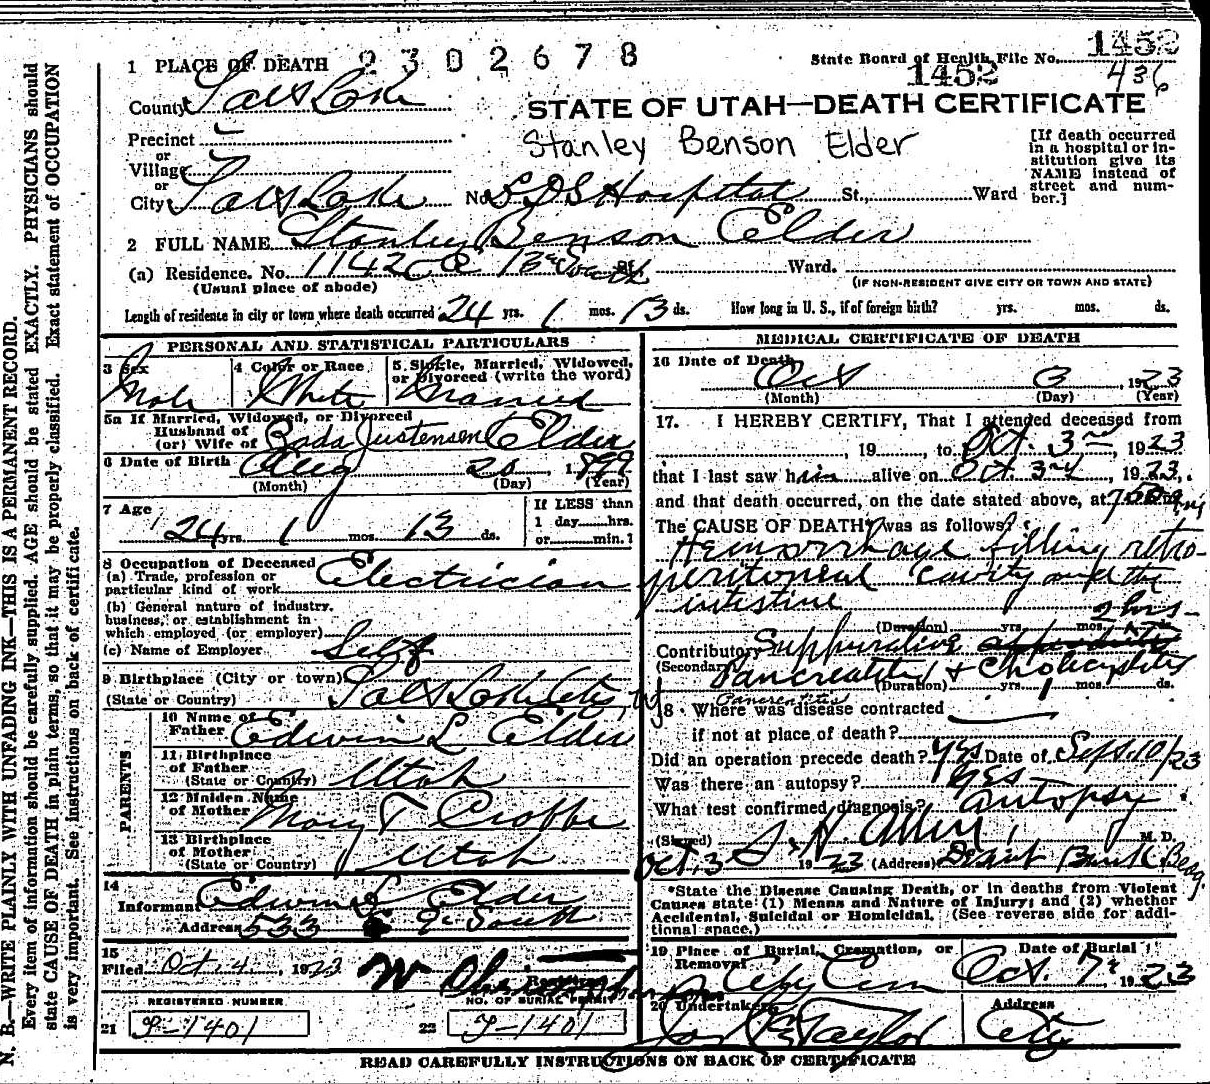 N. B.—WRITE PLAINLY WITH UNFADING INK—THIS IS A PERMANENT RECORD.
Every item of information should be carefully supplied. AGE should be stated EXACTLY. PHYSICIANS should
state CAUSE OF DEATH in plain terms, so that it may be properly classified. Exact statement of OCCUPATION
is very important. See instructions on back of certificate.
2302678
State Board of Health File No. 1452
1452 436
1 PLACE OF DEATH
County Salt Lake
STATE OF UTAH—DEATH CERTIFICATE
Stanley Benson Elder
Precinct
or
Village
or
City Salt Lake No. L D S Hospital St., Ward
[If death occurred
in a hospital or in-
stitution give its
NAME instead of
street and num-
ber.]
2 FULL NAME Stanley Benson Elder
(a) Residence. No. 1142 E 13 South St. Ward.
(Usual place of abode) (IF NON-RESIDENT GIVE CITY OR TOWN AND STATE)
Length of residence in city or town where death occurred 24 yrs. 1 mos. 13 ds. How long in U. S., if of foreign birth? yrs. mos. ds.
PERSONAL AND STATISTICAL PARTICULARS
3 Sex Male
4 Color or Race White
5 Single, Married, Widowed,
or Divorced (write the word)
Married
5a If Married, Widowed, or Divorced
Husband of
(or) Wife of Justensen Elder
6 Date of Birth Aug 20, 1899
(Month) (Day) (Year)
7 Age 24 yrs. 1 mos. 13 ds.
If LESS than
1 day......hrs.
or......min.]
8 Occupation of Deceased
(a) Trade, profession or
particular kind of work Electrician
(b) General nature of industry.
business, or establishment in
which employed (or employer)
(c) Name of Employer Self
9 Birthplace (City or town)
(State or Country) Salt Lake City
PARENTS
10 Name of
Father Edwin L Elder
11 Birthplace
of Father
(State or Country) Utah
12 Maiden Name
of Mother Mary T
13 Birthplace
of Mother
(State or Country) Utah
14
Informant Edwin L Elder
Address 533 E 9 South
15
Filed Oct. 4, 1923
Registrar
REGISTERED NUMBER
21 T-1401
NO. OF BURIAL PERMIT
22 T-1401
MEDICAL CERTIFICATE OF DEATH
16 Date of Death
Oct 3, 1923
(Month) (Day) (Year)
17. I HEREBY CERTIFY, That I attended deceased from
, 19 , to Oct. 3rd, 1923
that I last saw him alive on Oct. 3rd, 1923,
and that death occurred, on the date stated above, at
The CAUSE OF DEATH was as follows:
Hemorrhage filling retro-
peritoneal cavity and the
intestine
(Duration) yrs. mos. 2 hrs-
Contributory Suppurative
(Secondary) Pancreatitis & Cholecystitis
(Duration) yrs. 1 mos. ds.
Pancreatitis
18 Where was disease contracted
if not at place of death?
Did an operation precede death? yes Date of Sept. 10/23
Was there an autopsy? yes
What test confirmed diagnosis? autopsy
(Signed) S. H. Allen, M. D.
Oct, 3 1923 (Address)
*State the Disease Causing Death, or in deaths from Violent
Causes state (1) Means and Nature of Injury; and (2) whether
Accidental, Suicidal or Homicidal. (See reverse side for addi-
tional space.)
19 Place of Burial, Cremation, or
Removal City Cem
Date of Burial
Oct. 7, 1923
20 Undertaker Taylor
Address
City
READ CAREFULLY INSTRUCTIONS ON BACK OF CERTIFICATE